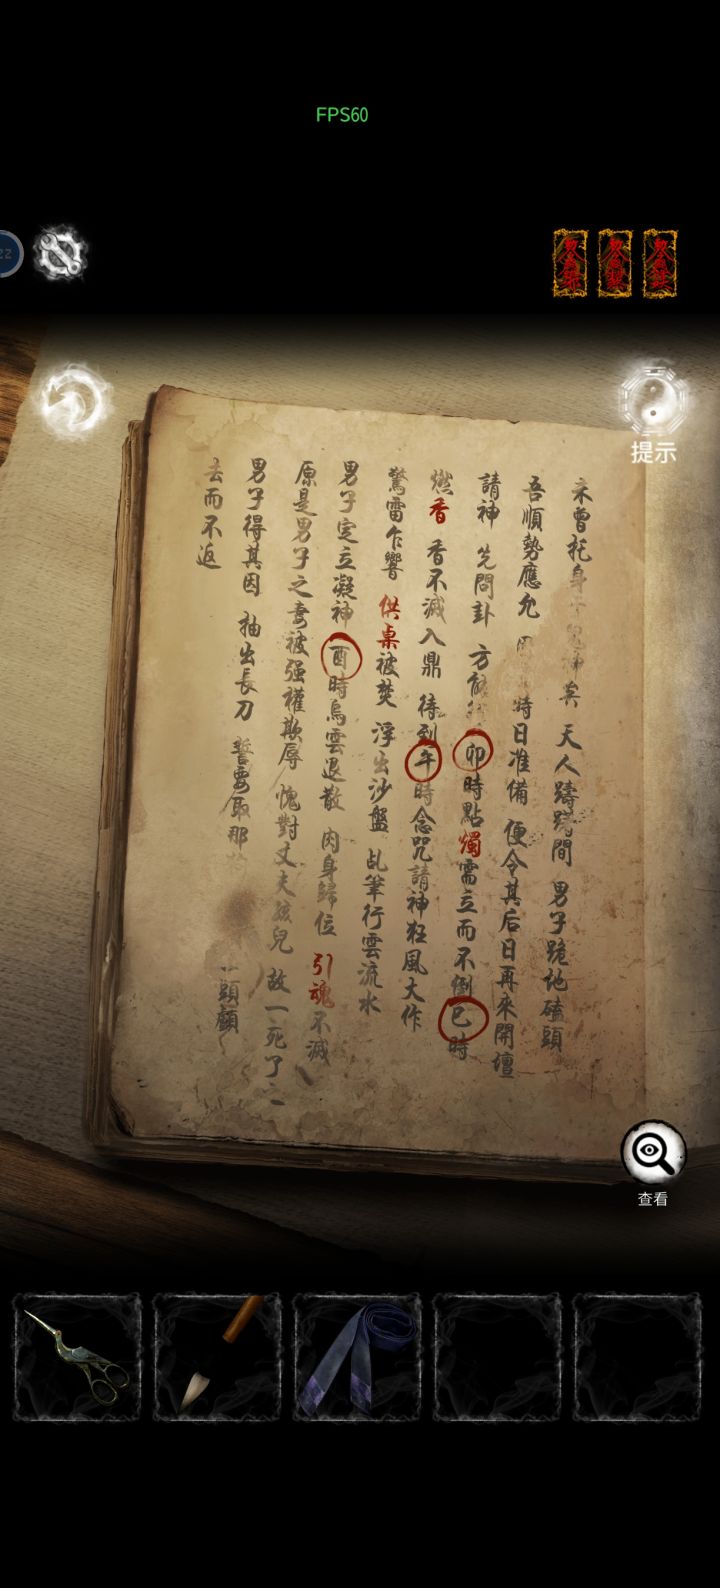 FPS60
提示
未曾托身
矣 天人躊躇間 男子跪地磕頭
吾順勢應允
時日准備 便令其后日再來開壇
請神 先問卦 方能
卯時點燭需立而不倒巳時
燃香 香不滅入鼎 待到午時念咒請神狂風大作
驚雷乍響 供桌被焚 浮出沙盤 乩筆行雲流水
男子定立凝神酉時烏雲退散 肉身歸位 引魂不滅
原是男子之妻被强權欺辱 愧對丈夫孩兒 故一死了之
男子得其因 抽出長刀 誓要取那
頭顱
去而不返
查看